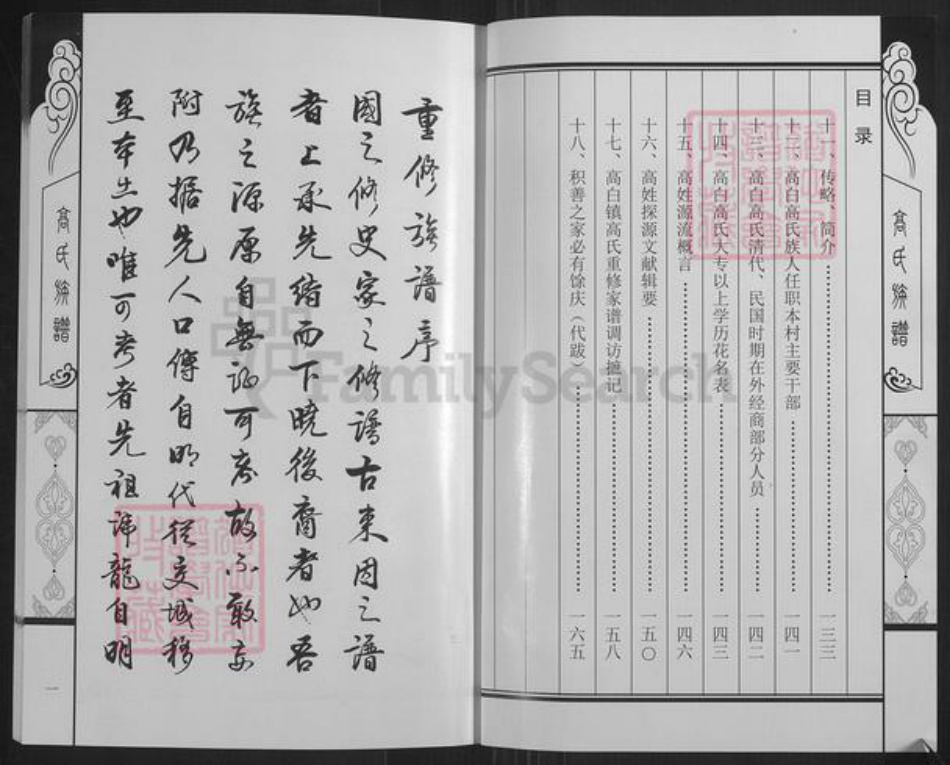 高氏族譜
目录
十一、传略、简介 一三三
十二、高白高氏族人任职本村主要干部 一四一
十三、高白高氏清代、民国时期在外经商部分人员 一四二
十四、高白高氏大专以上学历花名表 一四三
十五、高姓源流概言 一四六
十六、高姓探源文献辑要 一五〇
十七、高白镇高氏重修家谱调访摭记 一五八
十八、积善之家必有馀庆（代跋） 一六五
重修族譜序
國之修史家之修譜古来因之譜
者上承先緒而下曉後裔者也吾
族之源原自無証可考故不敢妄
附乃据先人口傳自明代從交城移
至本土也唯可考者先祖諱龍自明
高氏族譜
一
FamilySearch